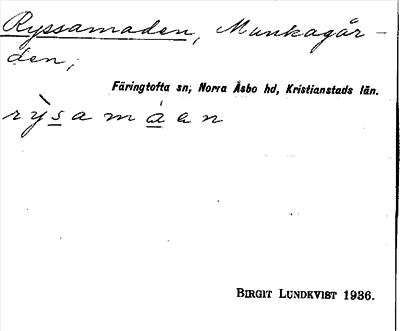 Ryssamaden, Munkagår-
den;
Färingtofta sn, Norra Åsbo hd, Kristianstads län.
rỳs̲amá̲en
BIRGIT LUNDKVIST 1936.